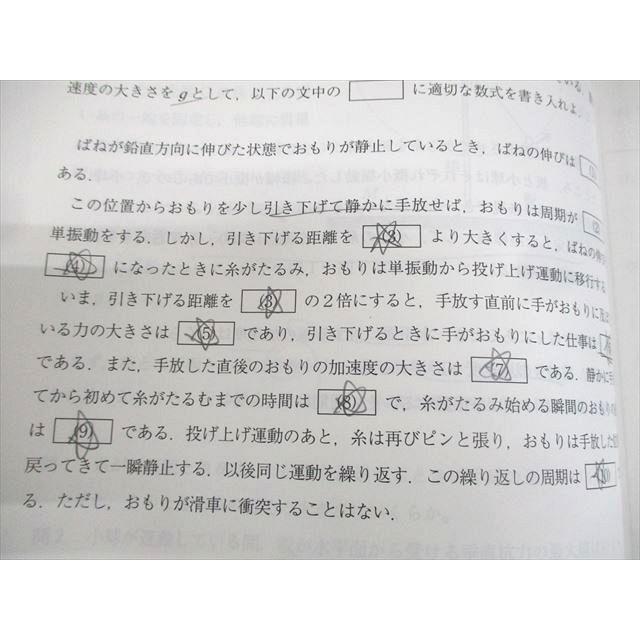 速度の大きさを g として，以下の文中の□に適切な数式を書き入れよ．
ばねが鉛直方向に伸びた状態でおもりが静止しているとき，ばねの伸びは (1)
ある．
この位置からおもりを少し引き下げて静かに手放せば，おもりは周期が (2)
単振動をする．しかし，引き下げる距離を (3) より大きくすると，ばねの伸
(4) になったときに糸がたるみ，おもりは単振動から投げ上げ運動に移行する
いま，引き下げる距離を (3) の2倍にすると，手放す直前に手がおもりに
いる力の大きさは (5) であり，引き下げるときに手がおもりにした仕事は
である．また，手放した直後のおもりの加速度の大きさは (7) である．静かに
てから初めて糸がたるむまでの時間は (8) で，糸がたるみ始める瞬間のおもりの
は (9) である．投げ上げ運動のあと，糸は再びピンと張り，おもりは手放した
戻ってきて一瞬静止する．以後同じ運動を繰り返す．この繰り返しの周期は (10)
る．ただし，おもりが滑車に衝突することはない．